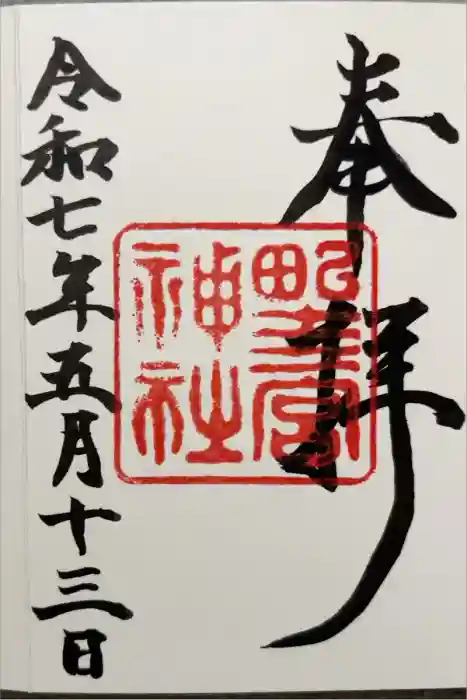 奉拝
野宮
神社
令和七年五月十三日